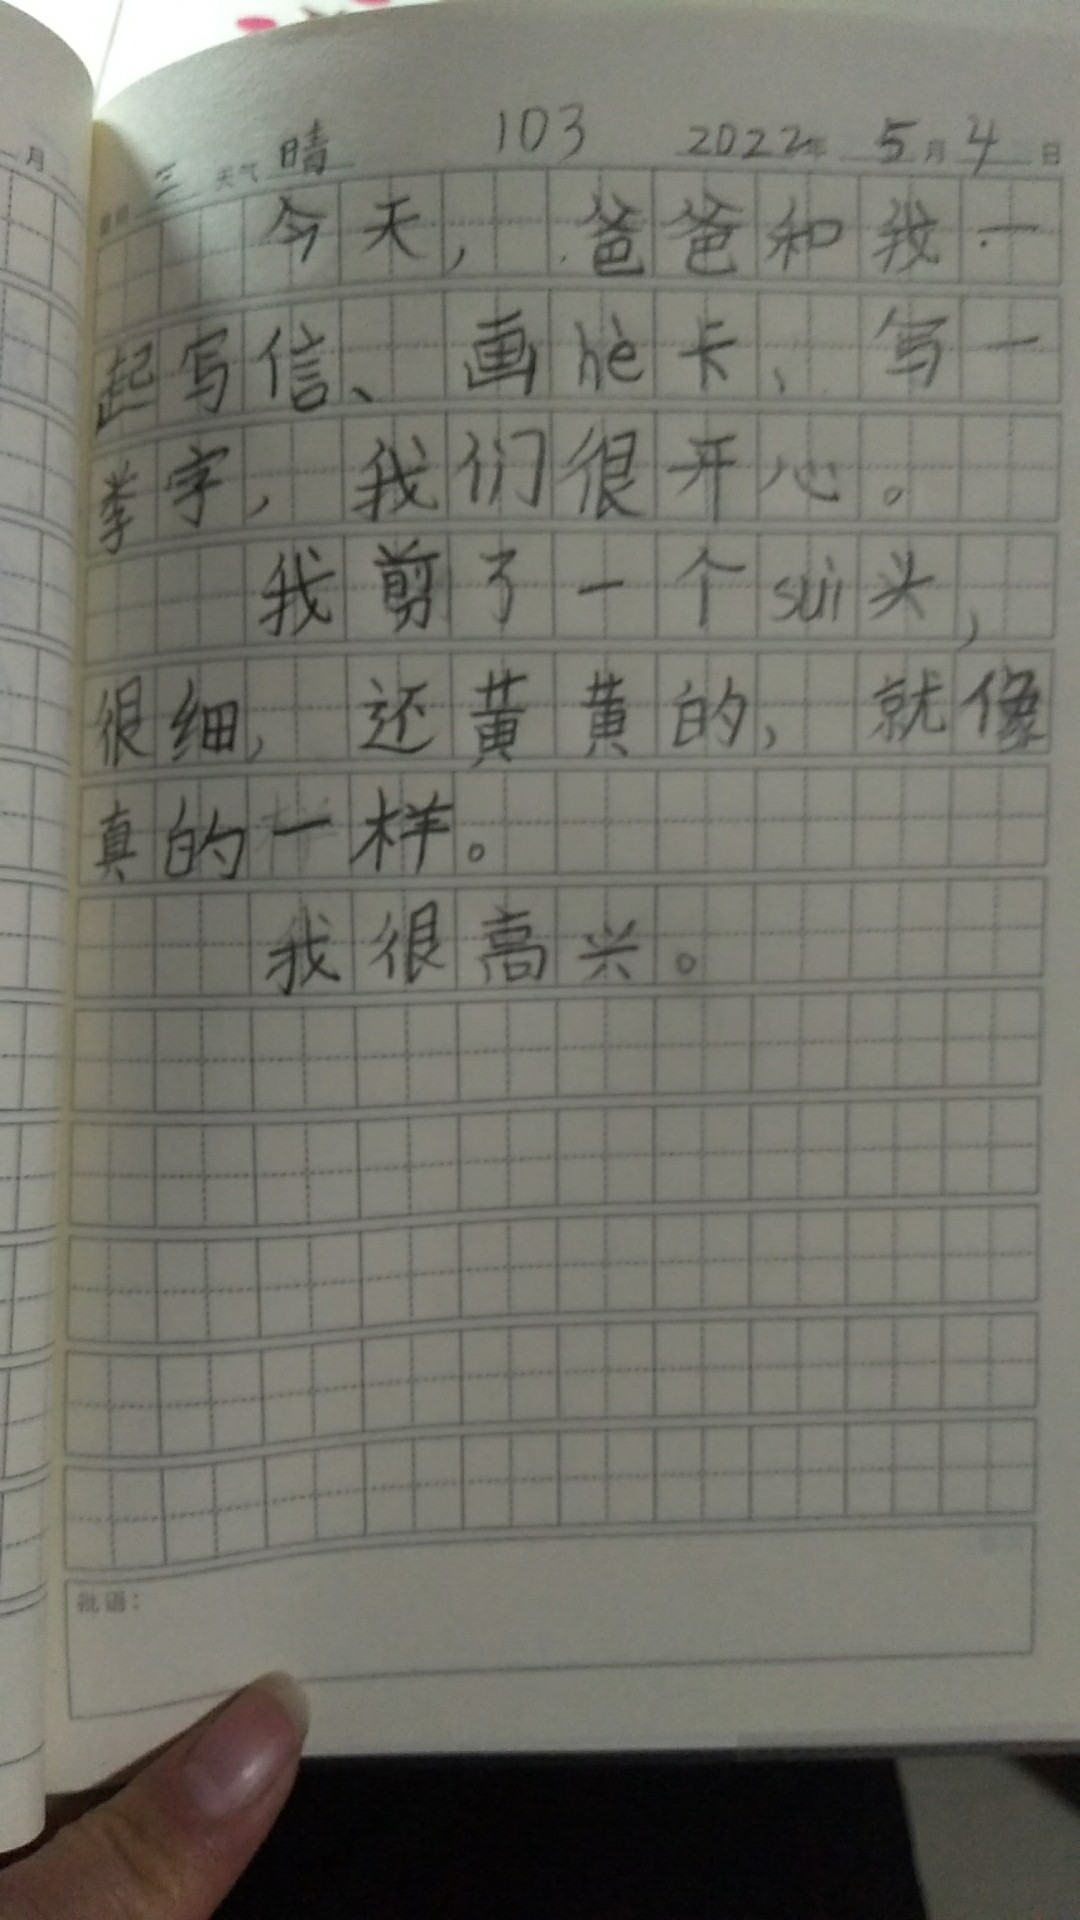 月
星期 三 天气 晴 103 2022年 5月4日
今天，爸爸和我一
起写信、画hè卡、写一
字，我们很开心。
我剪了一个sui头，
很细，还黄黄的，就像
真的一样。
我很高兴。
批语：